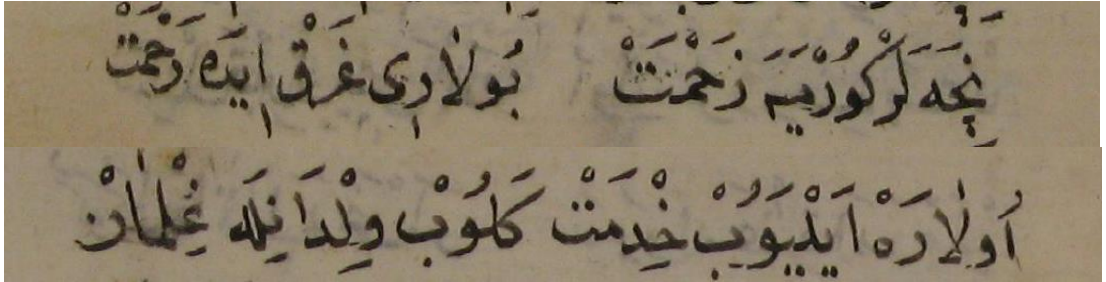 نِچَه لَرْ كُورْمَيَه زَحْمَتْ بُولَارِى غَرْقْ اِيدَه رَحْمَتْ
اُولَارَهْ اَيْلَيُوبْ خِدْمَتْ كَلُوبْ وِلْدَانِلَه غِلْمَانْ